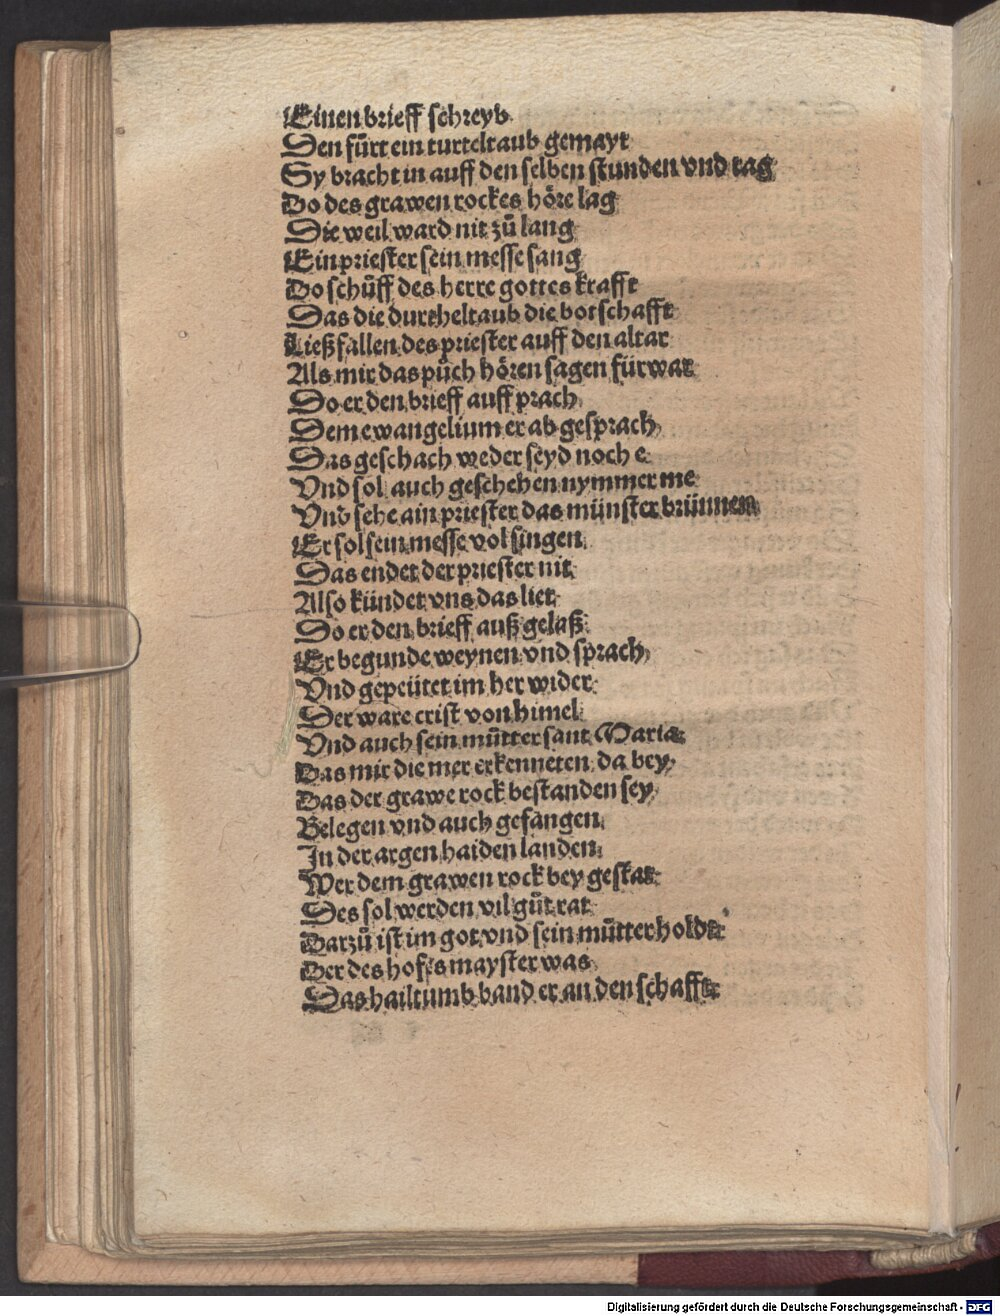 Einen brieff schreyb
Den fürt ein turteltaub gemayt
Sy bracht in auff den selben stunden vnd tag
Do des grawen rockes höre lag
Die weil ward nit zů lang
Ein priester sein messe sang
Do schůff des herre gottes krafft
Das die durtheltaub die botschafft
Ließ fallen des priester auff den altar
Als mir das půch hören sagen fürwar
Do er den brieff auff prach
Dem ewangelium er ab gesprach
Das geschach weder seyd noch e
Vnd sol auch geschehen nymmer me
Vnd sehe ain priester das münster brünnen
Er sol sein messe vol singen
Das endet der priester nit
Also kündet vns das liet
Do er den brieff auß gelaß
Er begunde weynen vnd sprach
Vnd gepeütet im her wider
Der ware crist von himel
Vnd auch sein můtter sant Maria
Das mir die mer erkenneten da bey
Das der grawe rock bestanden sey
Belegen vnd auch gefangen
In der argen haiden landen
Wer dem grawen rock bey gestat
Des sol werden vil gůt rat
Darzů ist im got vnd sein můtter holde
Der des hofes mayster was
Das hailtumb band er an den schaffte
Digitalisierung gefördert durch die Deutsche Forschungsgemeinschaft - DFG